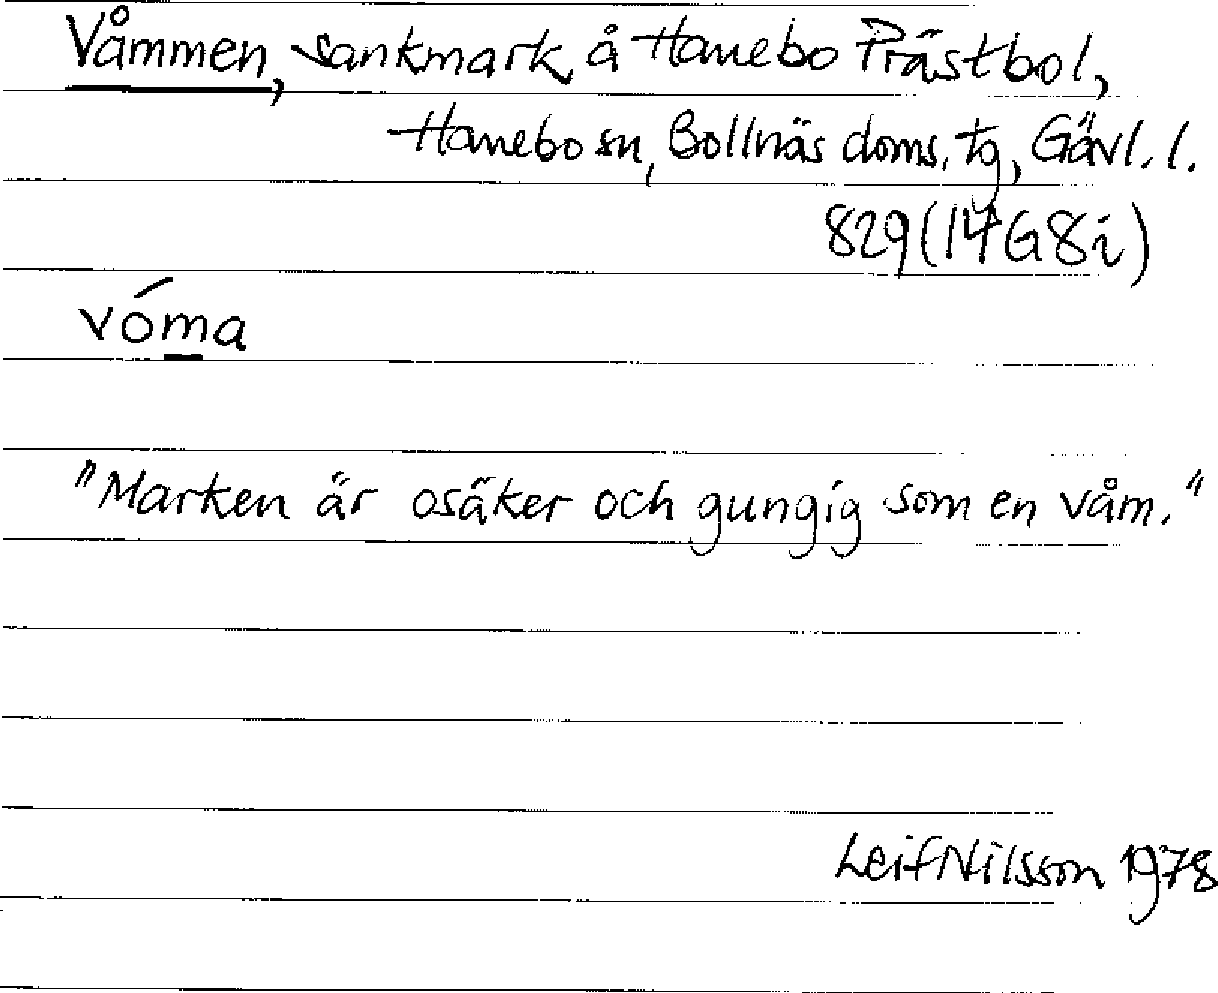 Våmmen, sankmark å Hanebo Prästbol,
Hanebo sn, Bollnäs doms. tg, Gävl. l.
829 (14G8i)
vóma
"Marken är osäker och gungig som en våm."
Leif Nilsson 1978